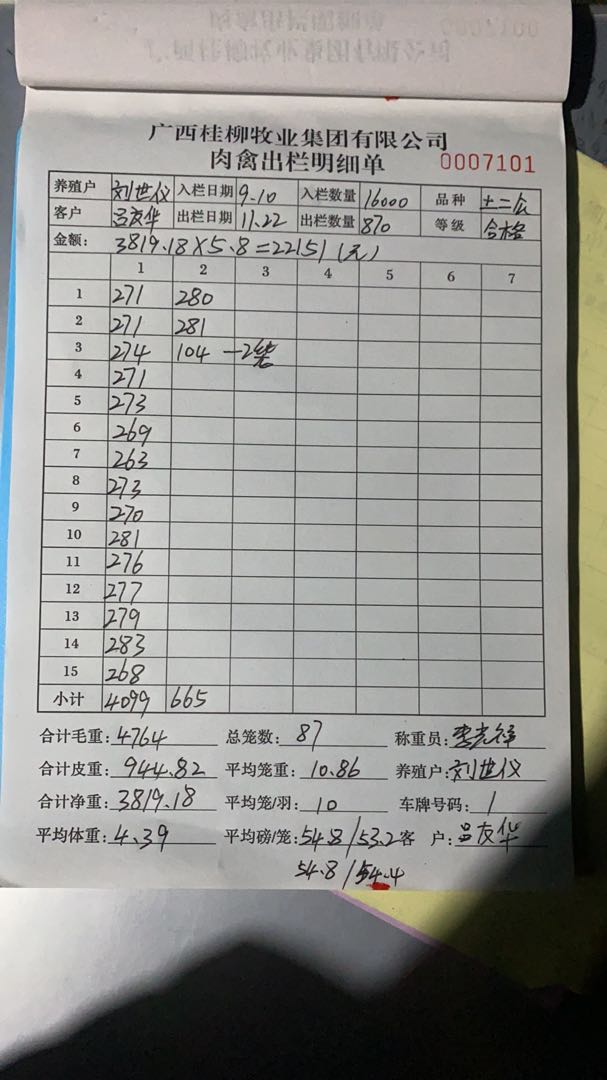 广西桂柳牧业集团有限公司
肉禽出栏明细单 0007101
养殖户 刘世仪 入栏日期 9.10 入栏数量 16000 品种 土二公
客户 吕友华 出栏日期 11.22 出栏数量 870 等级 合格
金额: 3819.18×5.8=22151(元)
1 2 3 4 5 6 7
1 271 280
2 271 281
3 274 104 —2笼
4 271
5 273
6 269
7 263
8 273
9 270
10 281
11 276
12 277
13 279
14 283
15 268
小计 4099 665
合计毛重: 4764 总笼数: 87 称重员:
合计皮重: 944.82 平均笼重: 10.86 养殖户: 刘世仪
合计净重: 3819.18 平均笼/羽: 10 车牌号码: 1
平均体重: 4.39 平均磅/笼: 54.8/53.2 客 户: 吕友华
54.8/54.4